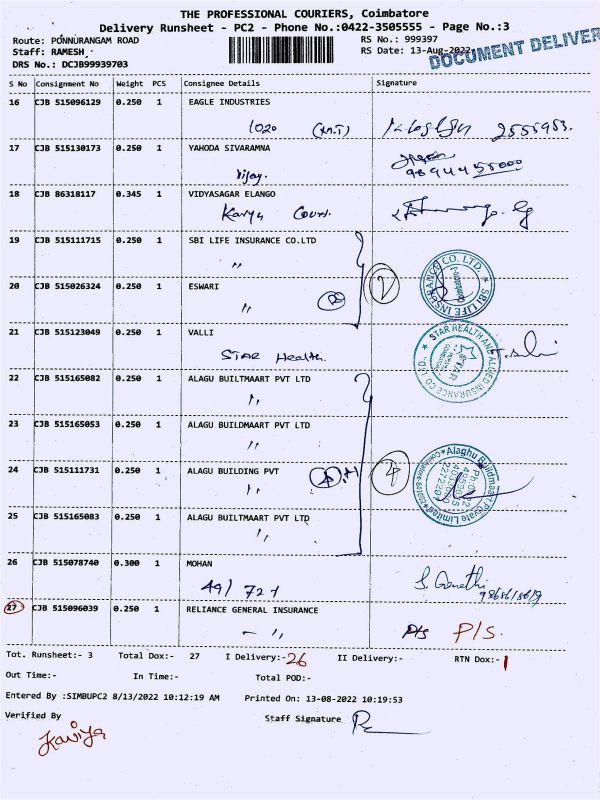 THE PROFESSIONAL COURIERS, Coimbatore
Delivery Runsheet - PC2 - Phone No.:0422-3505555 - Page No.:3
Route: PONNURANGAM ROAD
RS No.: 999397
Staff: RAMESH
RS Date: 13-Aug-2022
DRS No.: DCJB99939703
DOCUMENT DELIVER
S No Consignment No Weight PCS Consignee Details Signature
16 CJB 515096129 0.250 1 EAGLE INDUSTRIES
1020 2555953.
17 CJB 515130173 0.250 1 YAHODA SIVARAMNA
Vijay. 9894455000
18 CJB 86318117 0.345 1 VIDYASAGAR ELANGO
Kavya
19 CJB 515111715 0.250 1 SBI LIFE INSURANCE CO.LTD
〃
SBI LIFE INSURANCE CO. LTD.
20 CJB 515026324 0.250 1 ESWARI
〃 2
21 CJB 515123049 0.250 1 VALLI
STAR Health
STAR HEALTH AND ALLIED INSURANCE CO. LTD.
22 CJB 515165082 0.250 1 ALAGU BUILTMAART PVT LTD
〃
23 CJB 515165053 0.250 1 ALAGU BUILDMAART PVT LTD
〃
24 CJB 515111731 0.250 1 ALAGU BUILDING PVT
〃 4
Alaghu Buildmaart Private Limited
25 CJB 515165083 0.250 1 ALAGU BUILTMAART PVT LTD
〃
26 CJB 515078740 0.300 1 MOHAN
49/721
27 CJB 515096039 0.250 1 RELIANCE GENERAL INSURANCE
〃 P/S P/S.
Tot. Runsheet:- 3 Total Dox:- 27 I Delivery:- 26 II Delivery:- RTN Dox:- 1
Out Time:- In Time:- Total POD:-
Entered By :SIMBUPC2 8/13/2022 10:12:19 AM Printed On: 13-08-2022 10:19:53
Verified By Staff Signature
Kaviya